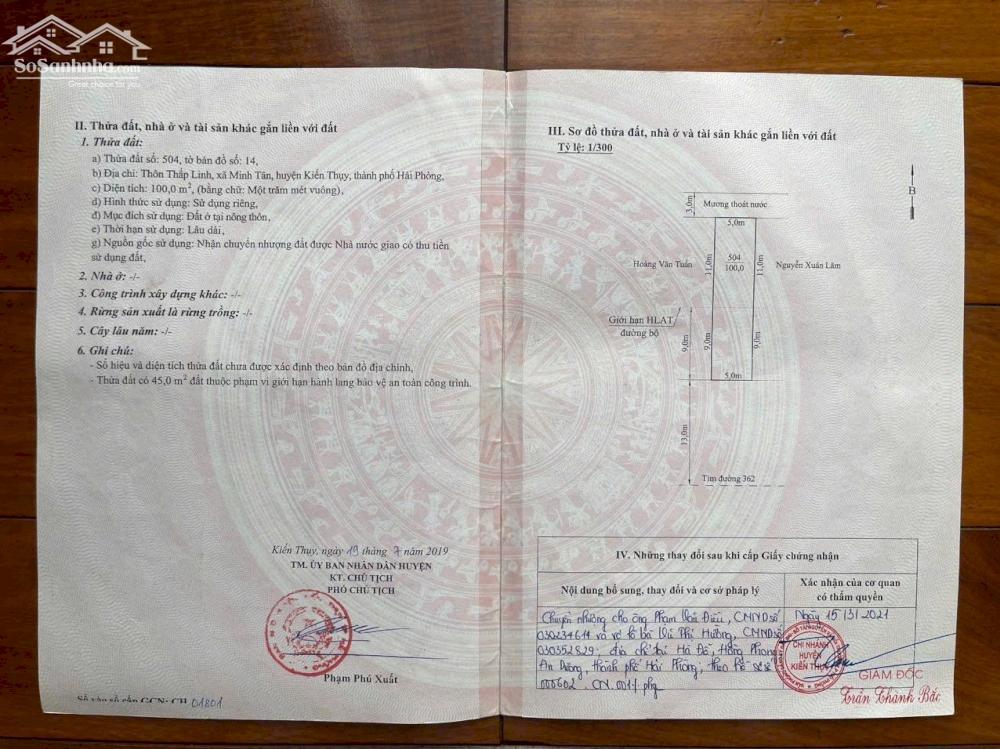 SoSanhnha.com
Great choice for you
II. Thửa đất, nhà ở và tài sản khác gắn liền với đất
1. Thửa đất:
a) Thửa đất số: 504, tờ bản đồ số: 14,
b) Địa chỉ: Thôn Thắp Linh, xã Minh Tân, huyện Kiến Thụy, thành phố Hải Phòng,
c) Diện tích: 100,0 m², (bằng chữ: Một trăm mét vuông),
d) Hình thức sử dụng: Sử dụng riêng,
đ) Mục đích sử dụng: Đất ở tại nông thôn,
e) Thời hạn sử dụng: Lâu dài,
g) Nguồn gốc sử dụng: Nhận chuyển nhượng đất được Nhà nước giao có thu tiền
sử dụng đất,
2. Nhà ở: -/-
3. Công trình xây dựng khác: -/-
4. Rừng sản xuất là rừng trồng: -/-
5. Cây lâu năm: -/-
6. Ghi chú:
- Số hiệu và diện tích thửa đất chưa được xác định theo bản đồ địa chính,
- Thửa đất có 45,0 m² đất thuộc phạm vi giới hạn hành lang bảo vệ an toàn công trình.
Kiến Thụy, ngày 19 tháng 7 năm 2019
TM. ỦY BAN NHÂN DÂN HUYỆN
KT. CHỦ TỊCH
PHÓ CHỦ TỊCH
Phạm Phú Xuất
Số vào sổ cấp GCN: CH 01801
III. Sơ đồ thửa đất, nhà ở và tài sản khác gắn liền với đất
Tỷ lệ: 1/300
B
3,0m
Mương thoát nước
5,0m
Hoàng Văn Tuấn
11,0m
504
100,0
11,0m
Nguyễn Xuân Lãm
Giới hạn HLAT
đường bộ
9,0m
9,0m
9,0m
5,0m
13,0m
Tim đường 362
IV. Những thay đổi sau khi cấp Giấy chứng nhận
Nội dung bổ sung, thay đổi và cơ sở pháp lý
Xác nhận của cơ quan
có thẩm quyền
Chuyển nhượng cho ông Phạm Văn Điều, CMND số
030234614 và vợ là bà Vũ Thị Hường, CMND số
030352829; địa chỉ tại Hà Đỗ, Hồng Phong
An Dương, thành phố Hải Phòng; theo hồ sơ số
000602. CN. 001
Ngày 15/3/2021
CHI NHÁNH
HUYỆN
KIẾN THỤY
GIÁM ĐỐC
Trần Thành Bắc